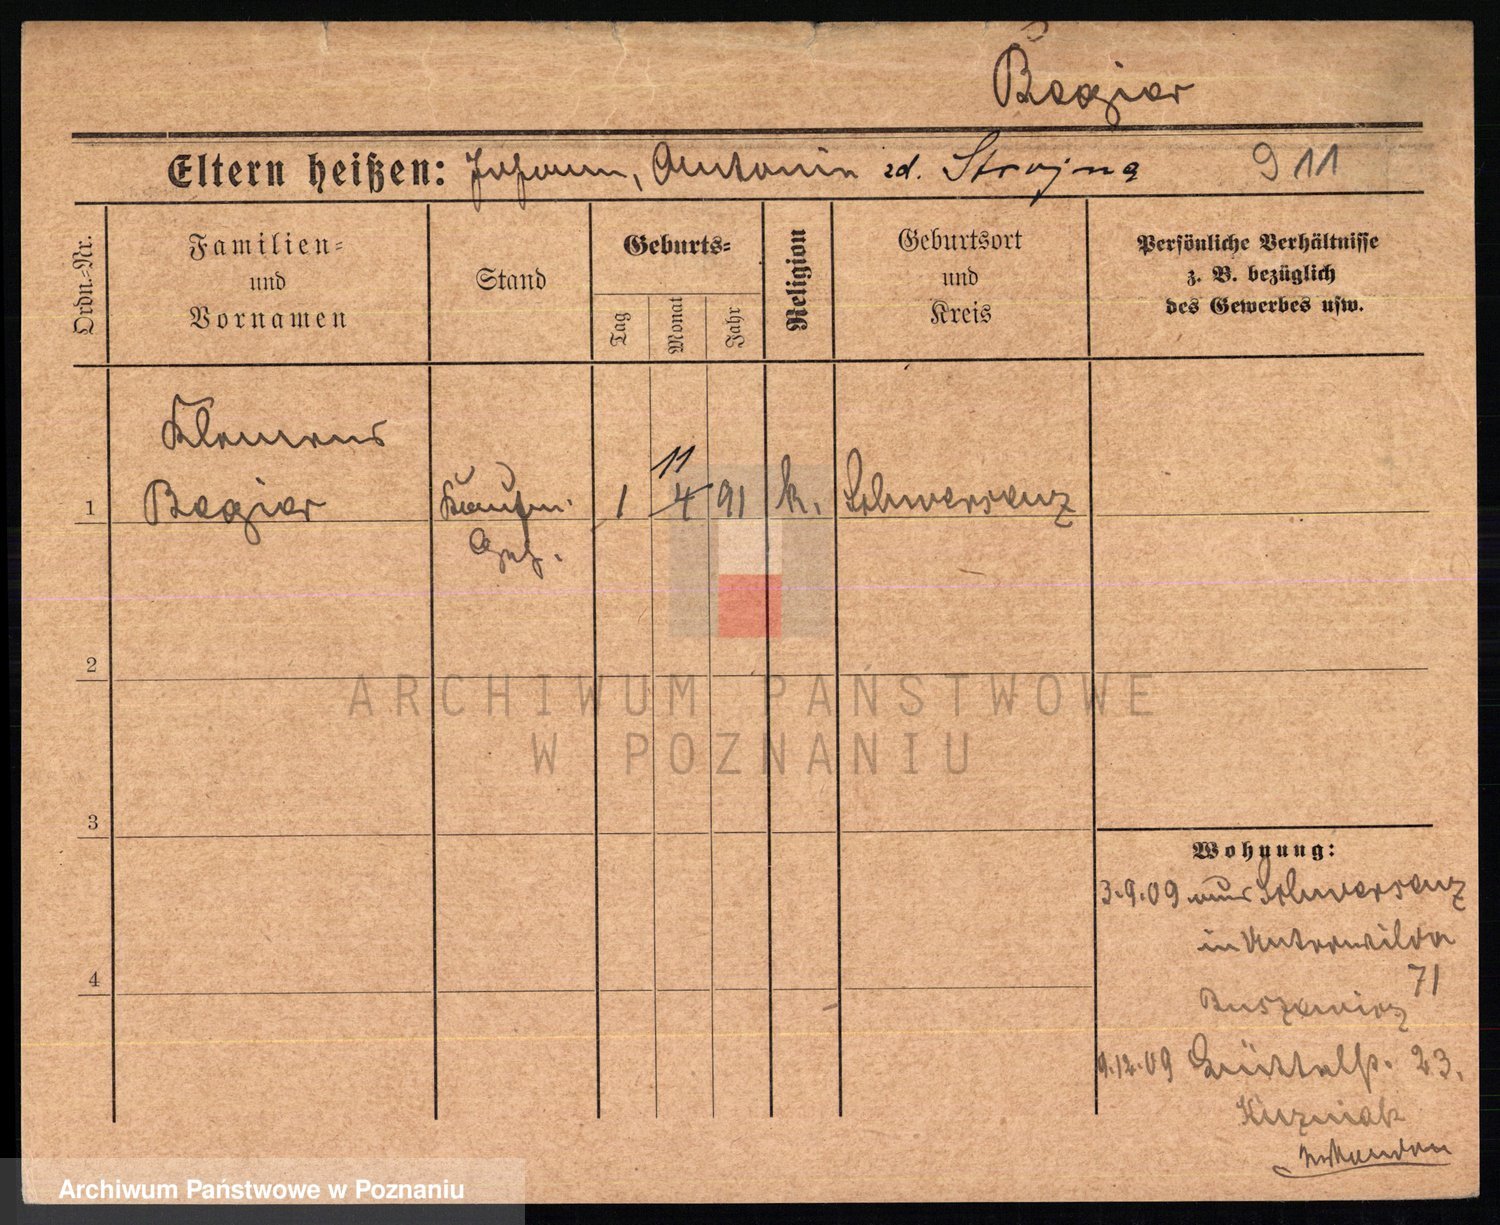 Bagier
Eltern heißen: Johann, Antonin zd. Strojna 911
Ordn.-Nr.
Familien-
und
Vornamen
Stand
Geburts-
Tag
Monat
Jahr
Religion
Geburtsort
und
Kreis
Persönliche Verhältnisse
z. B. bezüglich
des Gewerbes usw.
Klemens
11
1 Bagier Kaufm. 1 4 91 k. Schwersenz
2
3
4
Wohnung:
3.9.09 aus Schwersenz
in Unterwilda
71
9.12.09 23.
Kuzniak
ARCHIWUM PAŃSTWOWE
W POZNANIU
Archiwum Państwowe w Poznaniu